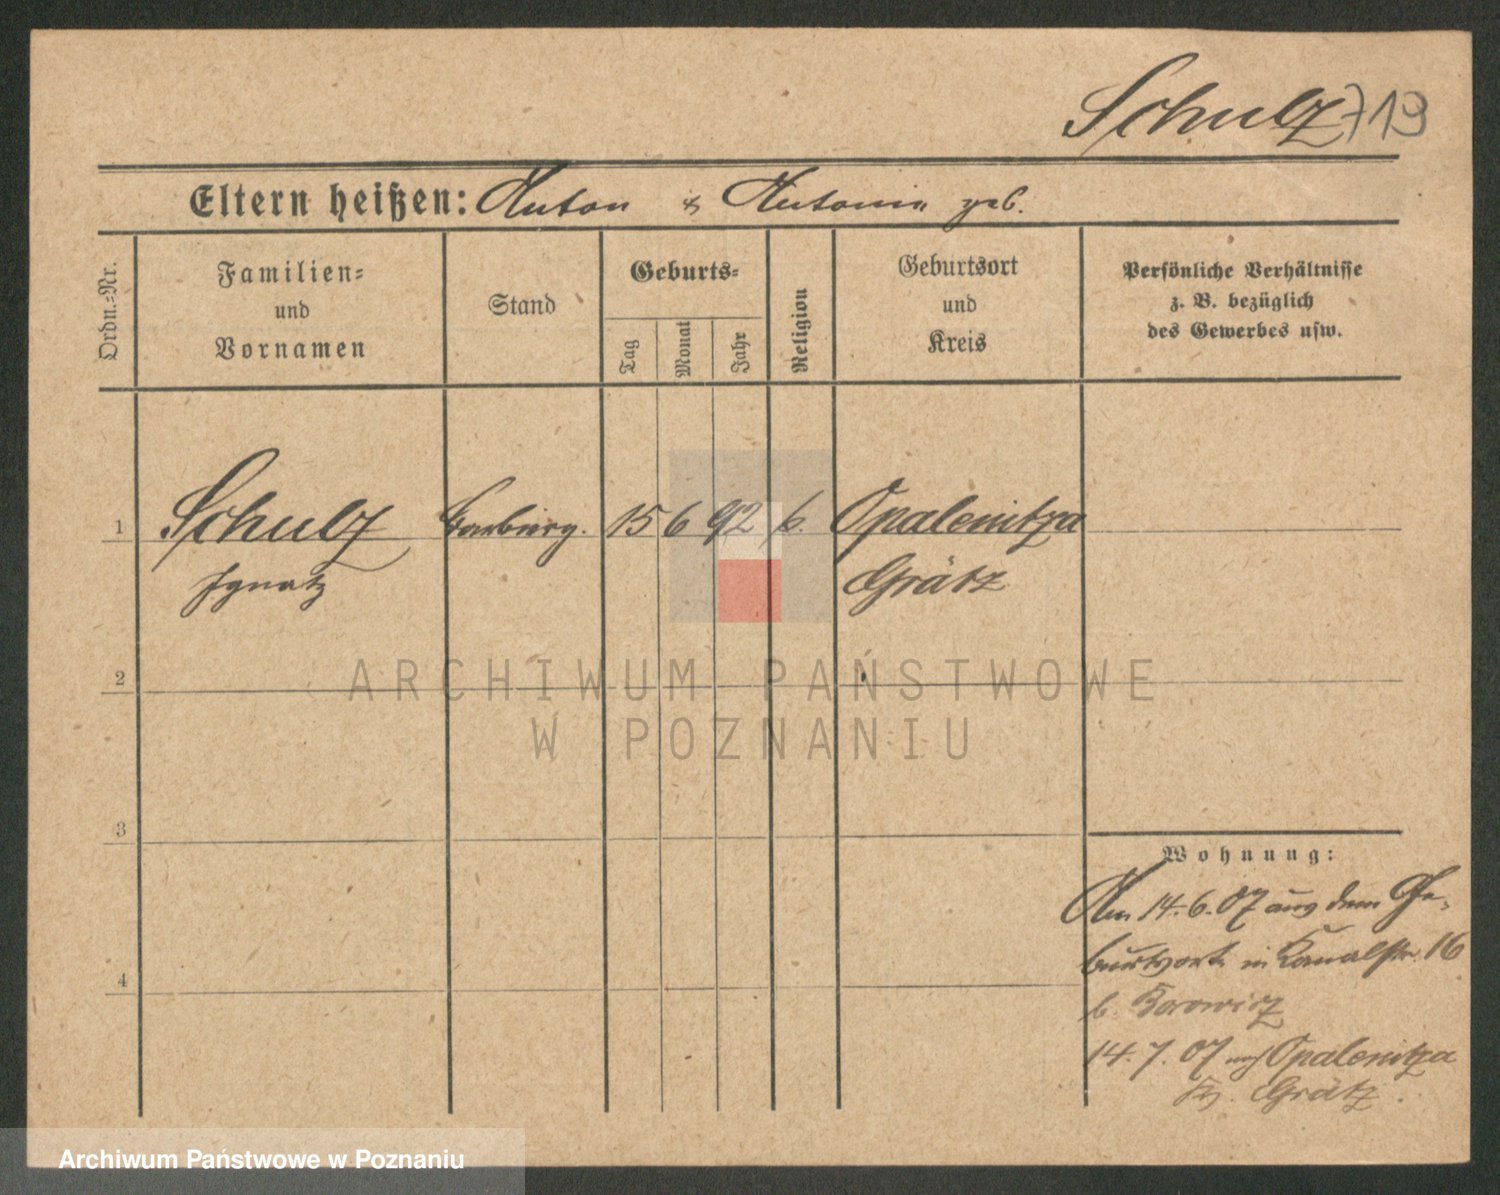 Schulz 719
Eltern heißen: Anton & Antonia geb.
Ordn.-Nr.
Familien-
und
Vornamen
Stand
Geburts-
Tag
Monat
Jahr
Religion
Geburtsort
und
Kreis
Persönliche Verhältnisse
z. B. bezüglich
des Gewerbes usw.
1 Schulz 15 6 92 k. Opalenitza
Ignatz Grätz
2
ARCHIWUM PAŃSTWOWE
W POZNANIU
3
Wohnung:
Am 14.6.07 aus dem Ge-
burtsort in Kanalstr. 16
b.
4
14.7.07 nach Opalenitza
Grätz.
Archiwum Państwowe w Poznaniu